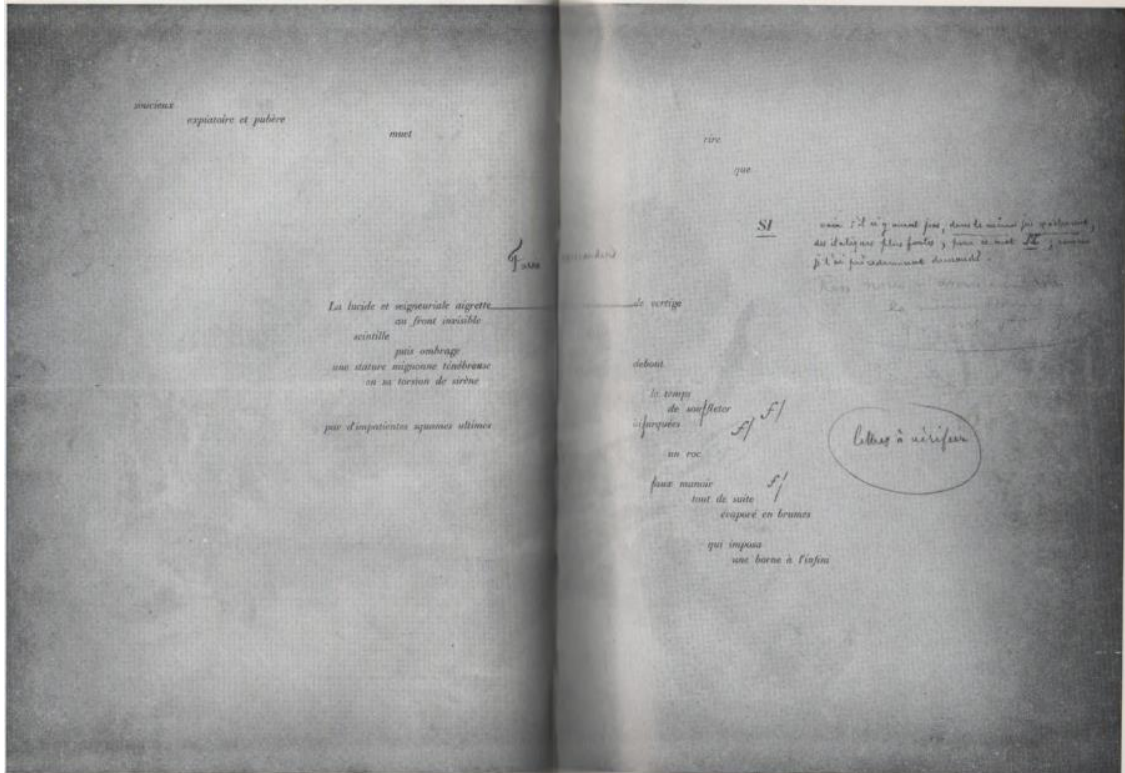 soucieux
expiatoire et pubère
muet
rire
que
SI
voir s'il n'y aurait pas, dans le même
des italiques plus fortes, pour ce mot SI, comme
je l'ai précédemment demandé.
La lucide et seigneuriale aigrette de vertige
au front invisible
scintille
puis ombrage
une stature mignonne ténébreuse debout
en sa torsion de sirène
le temps
de souffleter f/
par d'impatientes squames ultimes bifurquées f/
un roc
faux manoir f/
tout de suite
évaporé en brumes
qui imposa
une borne à l'infini
lettres à vérifier